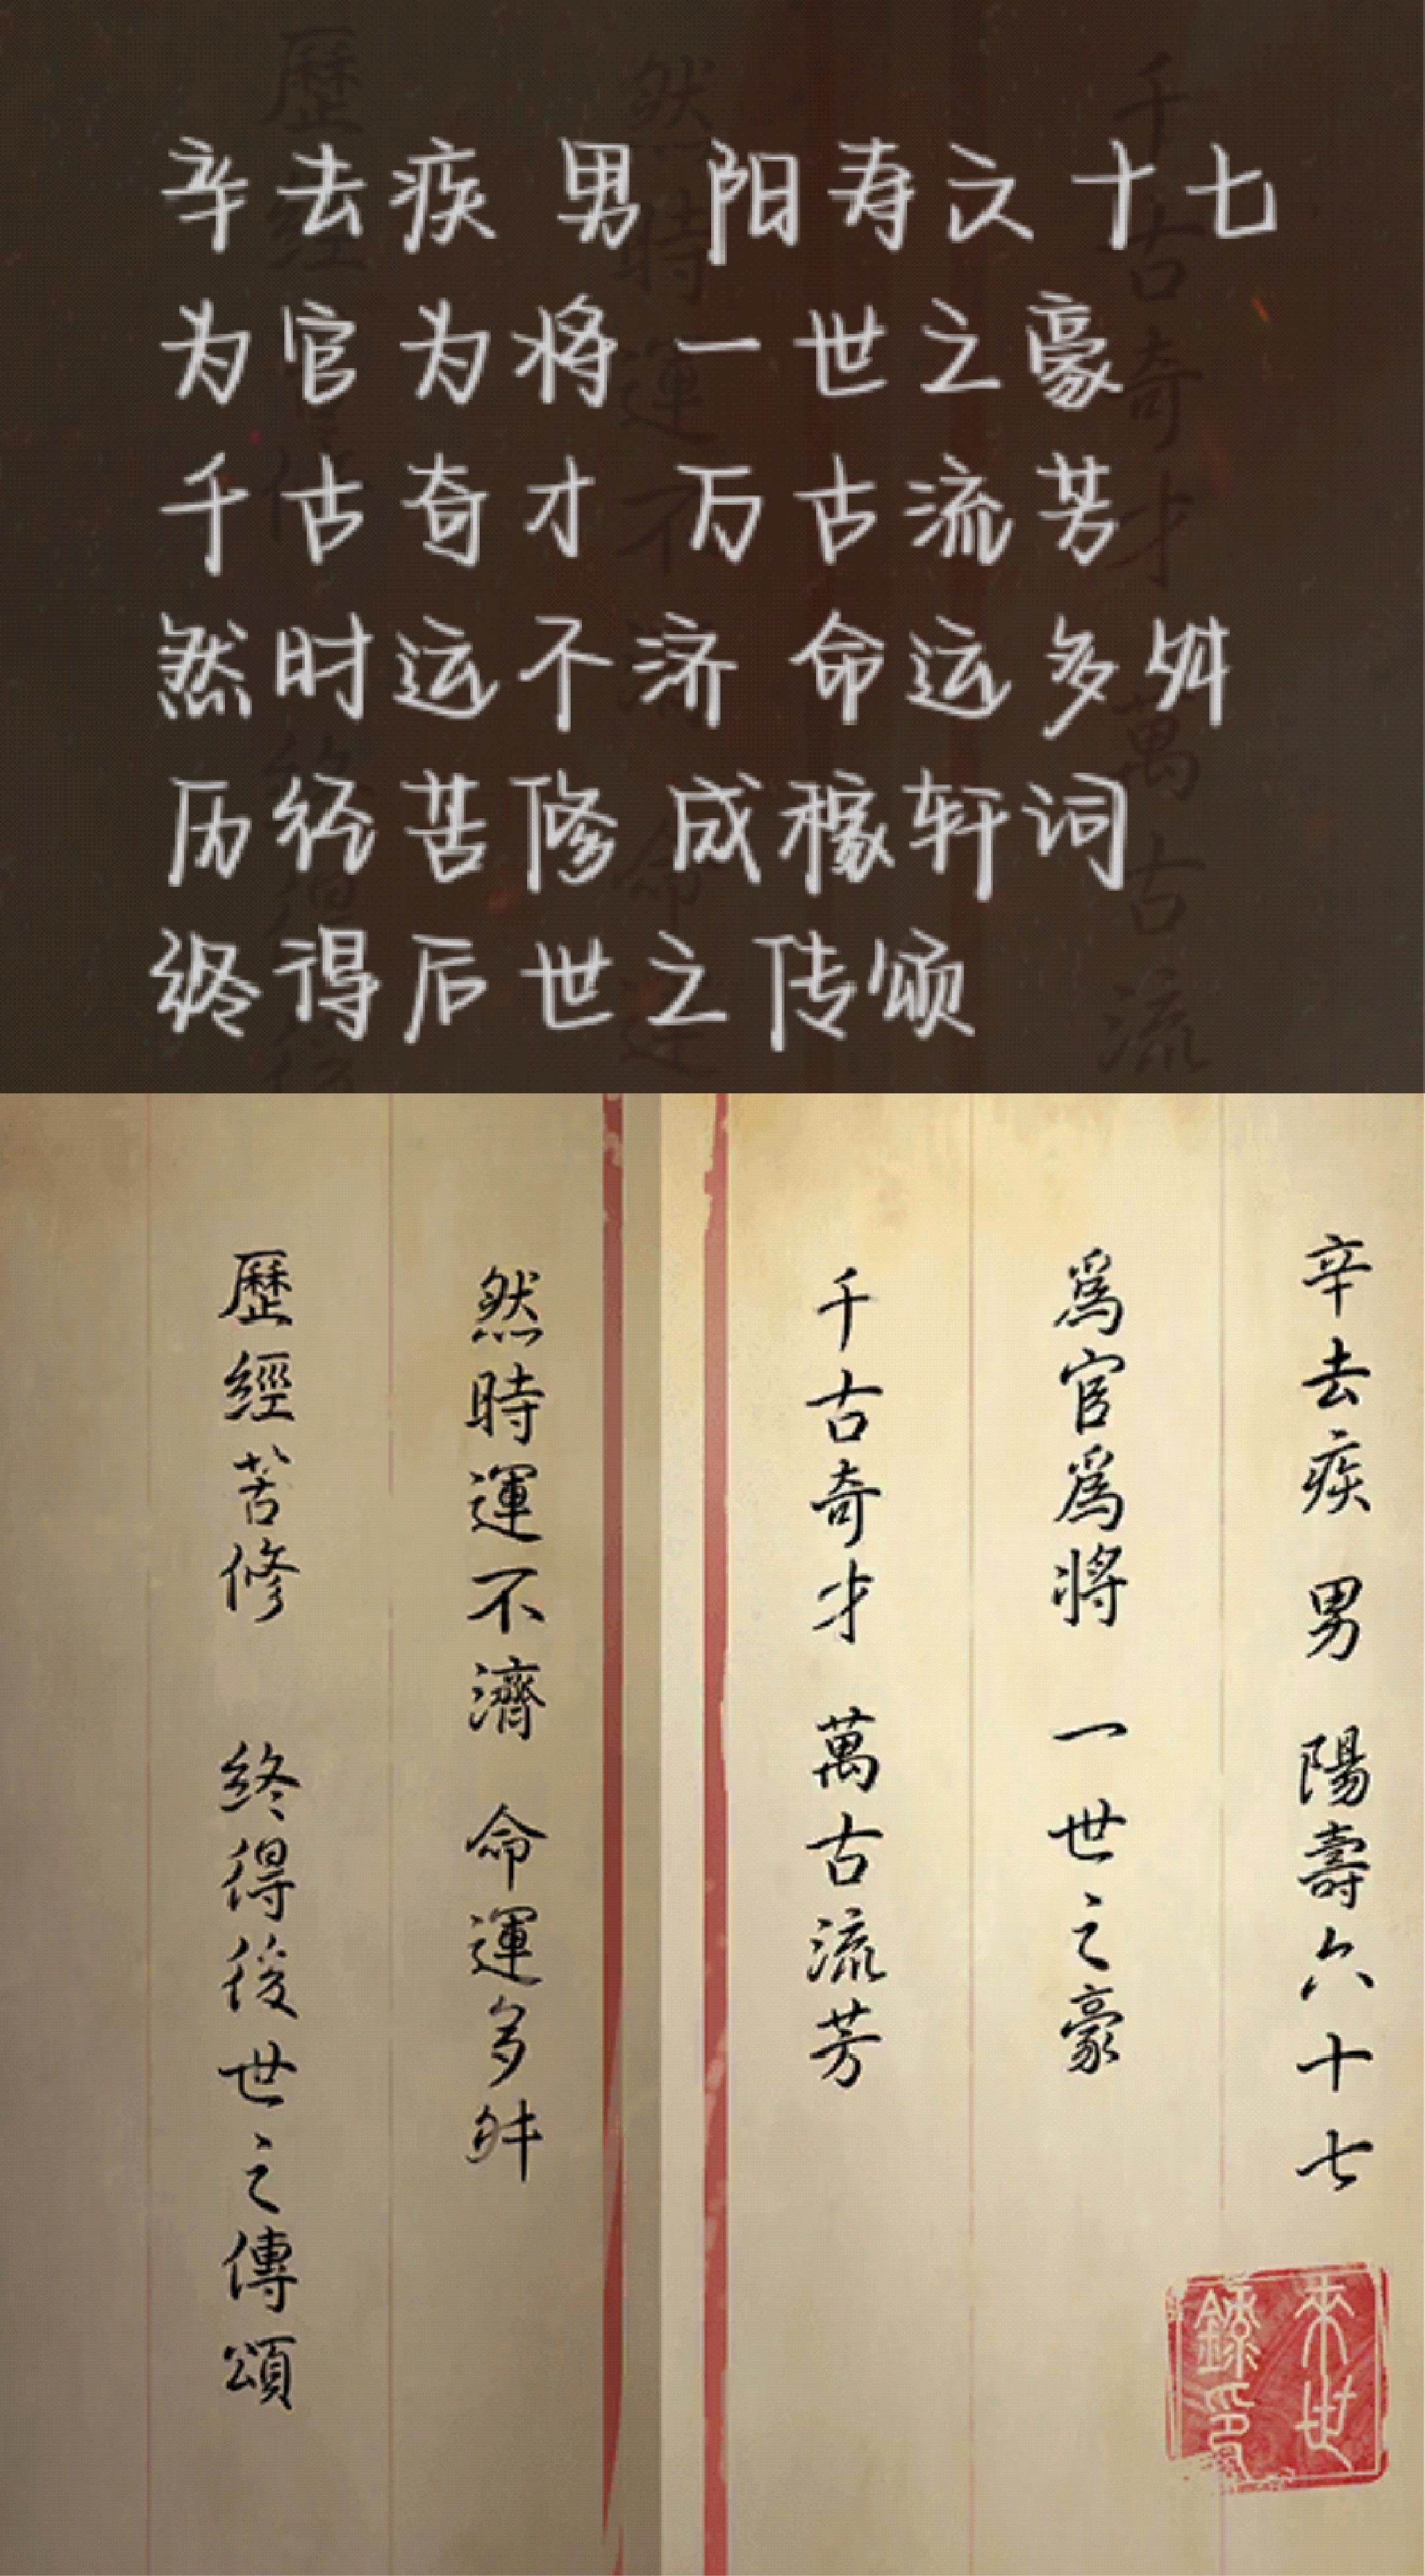 辛去疾 男 阳寿六十七
为官为将 一世之豪
千古奇才 万古流芳
然时运不济 命运多舛
历经苦修 成稼轩词
终得后世之传颂
辛去疾 男 陽壽六十七
爲官爲將 一世之豪
千古奇才 萬古流芳
然時運不濟 命運多舛
歷經苦修 終得後世之傳頌
來世
錄印